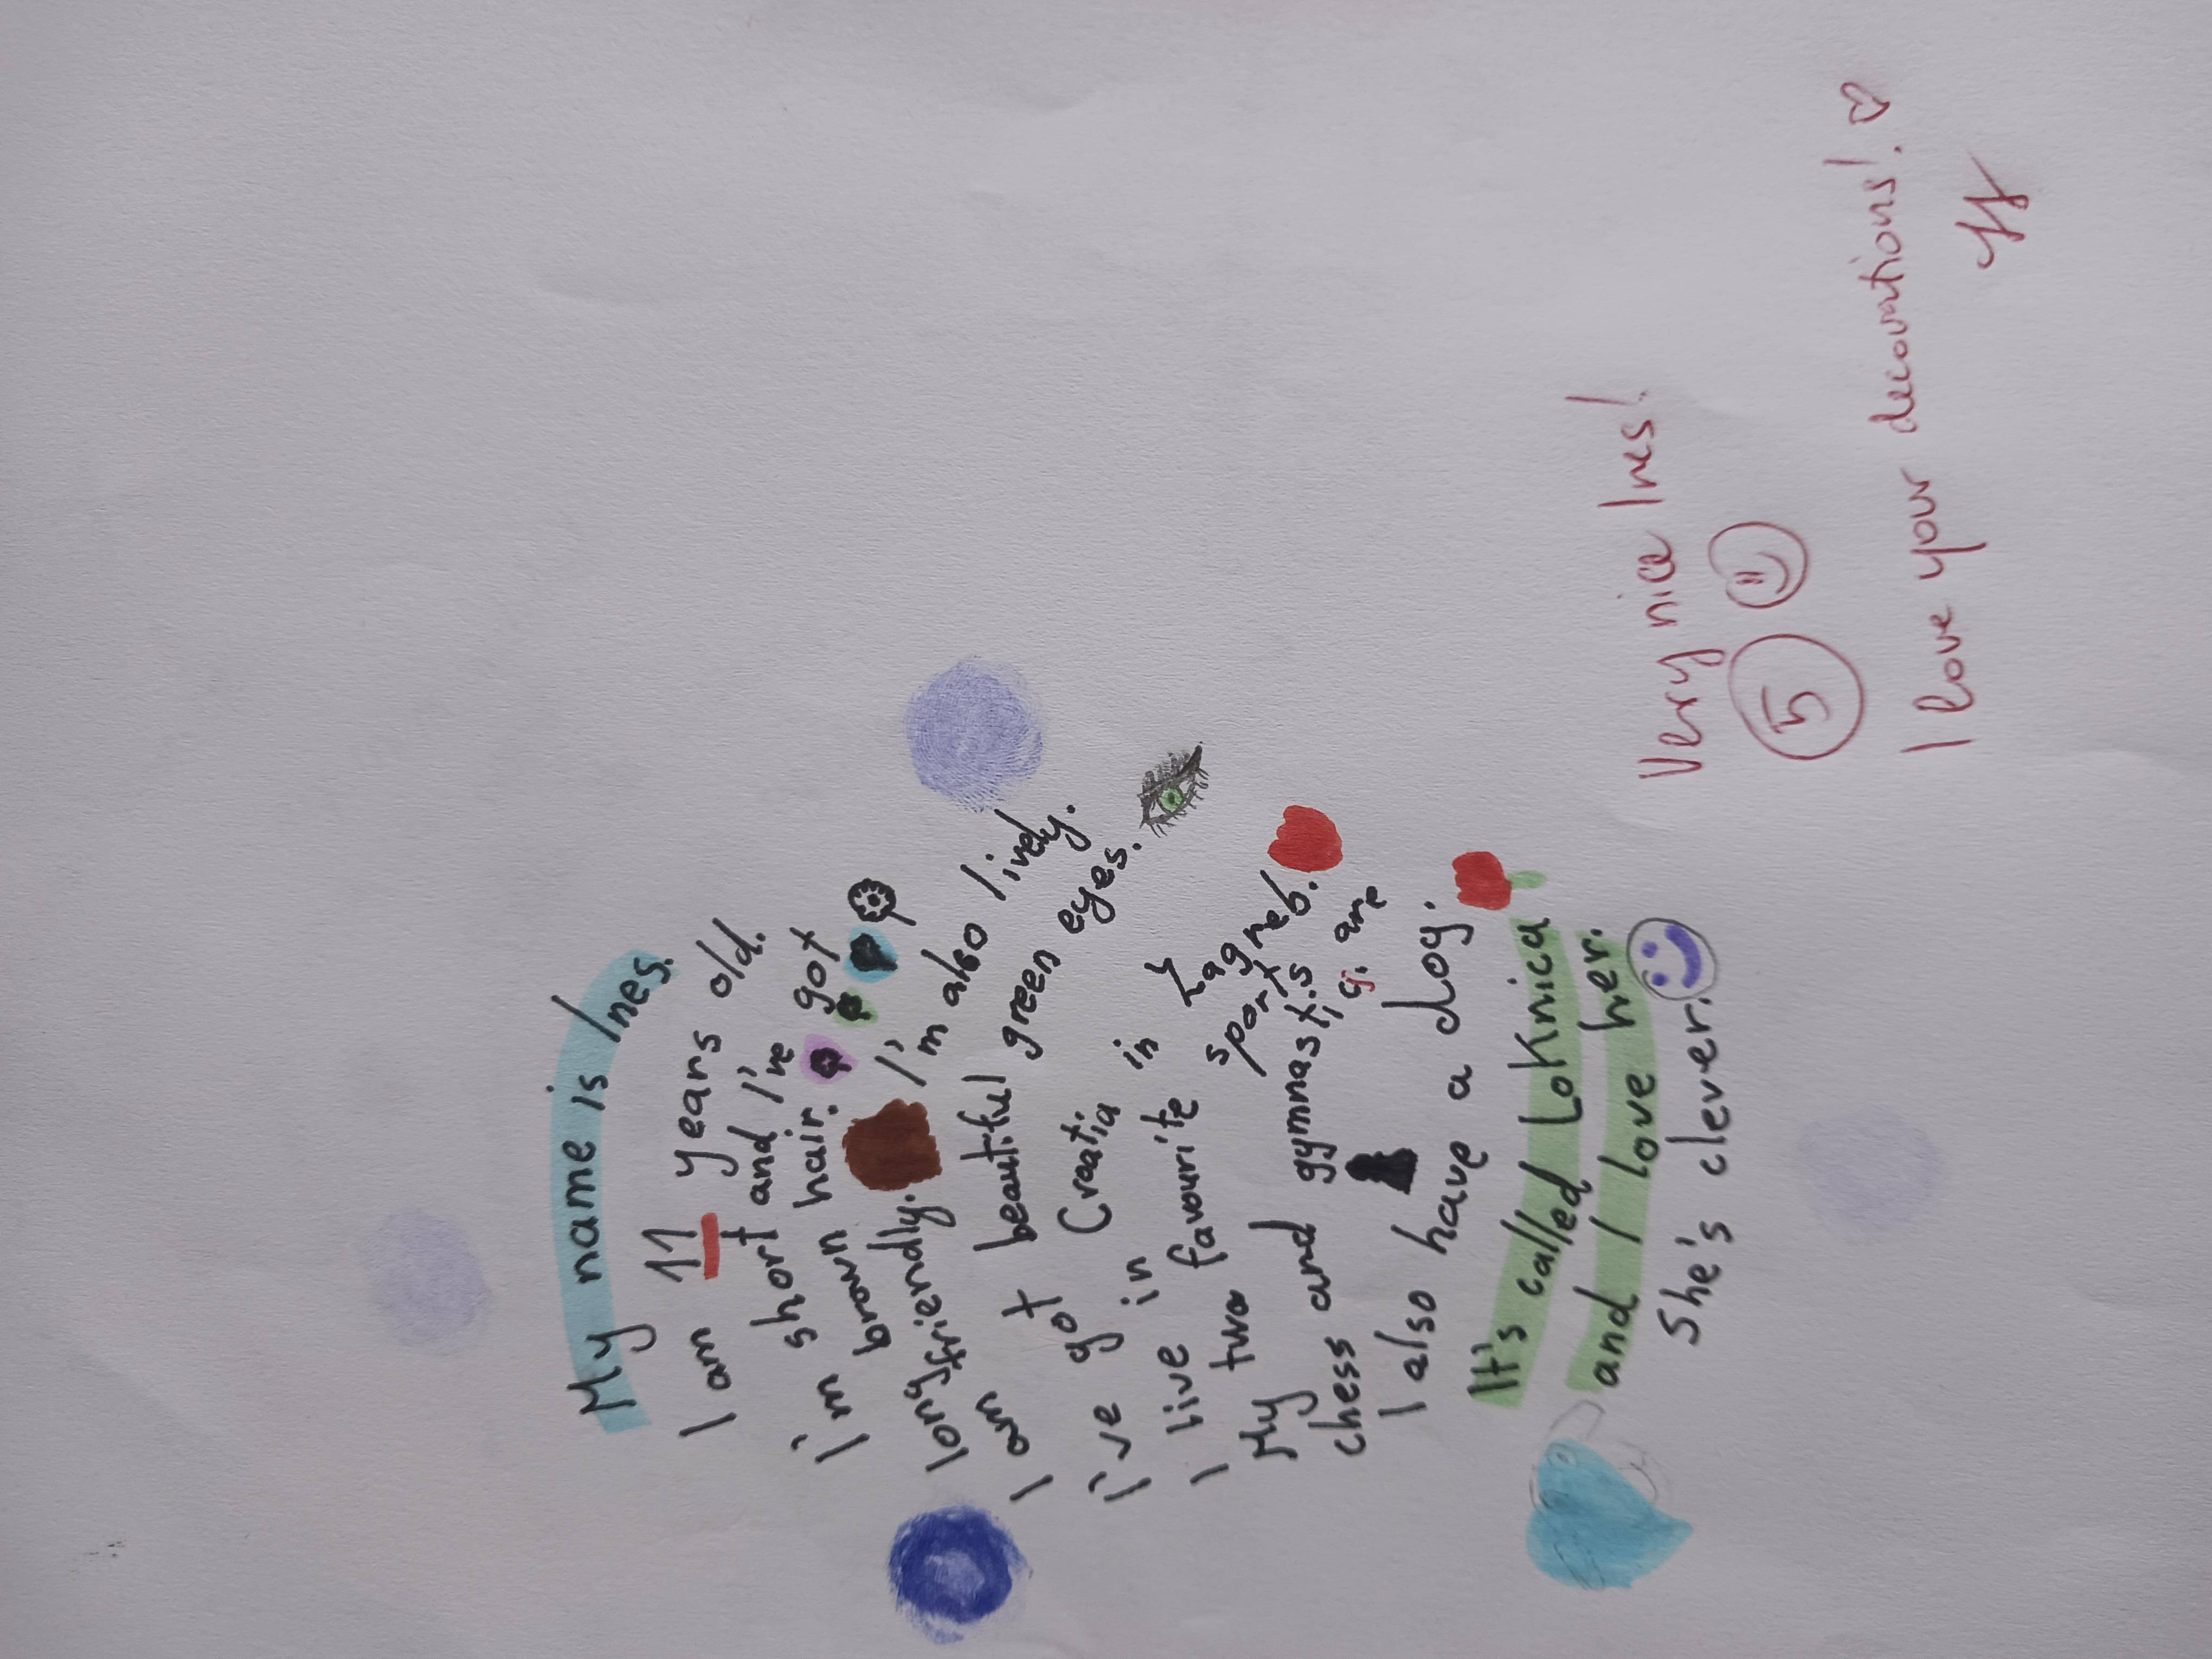 My name is Ines.
I am 11 years old.
I'm short and I've got
long brown hair.
I am friendly. I'm also lively.
I've got beautiful green eyes.
I live in Creatia in Zagreb.
My two favourite sports are
chess and gymnastics.
I also have a dog.
It's called Loknica
and I love her.
She's clever.
Very nice Ines!
5
I love your decorations!